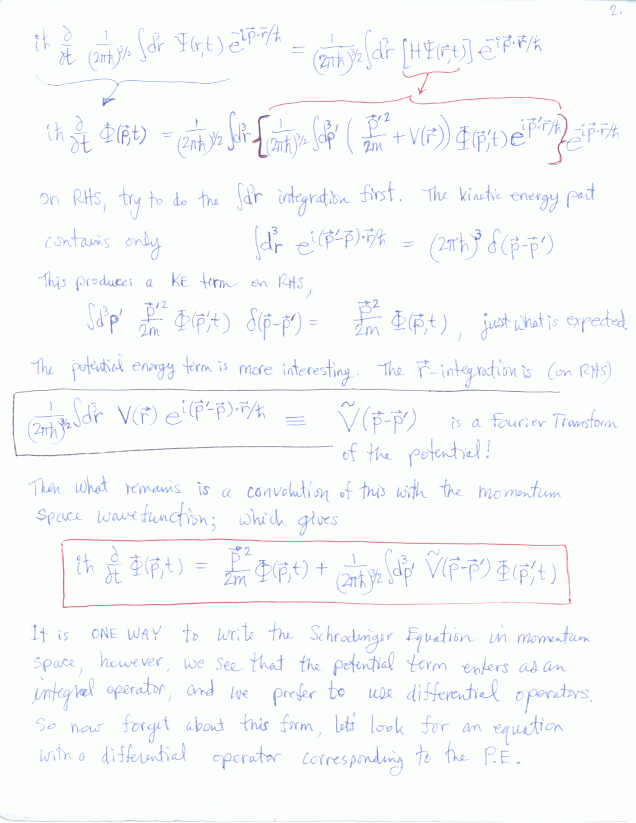 2.
iħ ∂/∂t 1/(2πħ)^{3/2} ∫d³r Ψ(r,t) e^{-ip⃗·r⃗/ħ} = 1/(2πħ)^{3/2} ∫d³r [HΨ(r,t)] e^{-ip⃗·r⃗/ħ}
iħ ∂/∂t Φ(p⃗,t) = 1/(2πħ)^{3/2} ∫d³r { 1/(2πħ)^{3/2} ∫d³p' ( p⃗'²/2m + V(r⃗) ) Φ(p⃗',t) e^{ip⃗'·r⃗/ħ} } e^{-ip⃗·r⃗/ħ}
On RHS, try to do the ∫d³r integration first. The kinetic energy part
contains only ∫d³r e^{i(p⃗'-p⃗)·r⃗/ħ} = (2πħ)³ δ(p⃗-p⃗')
This produces a KE term on RHS,
∫d³p' p⃗'²/2m Φ(p⃗',t) δ(p⃗-p⃗') = p⃗²/2m Φ(p⃗,t), just what is expected.
The potential energy term is more interesting. The r⃗-integration is (on RHS)
1/(2πħ)^{3/2} ∫d³r V(r⃗) e^{i(p⃗'-p⃗)·r⃗/ħ} ≡ Ṽ(p⃗-p⃗') is a Fourier Transform
of the potential!
Then what remains is a convolution of this with the momentum
space wavefunction; which gives
iħ ∂/∂t Φ(p⃗,t) = p⃗²/2m Φ(p⃗,t) + 1/(2πħ)^{3/2} ∫d³p' Ṽ(p⃗-p⃗') Φ(p⃗',t)
It is ONE WAY to write the Schrodinger Equation in momentum
space, however, we see that the potential term enters as an
integral operator, and we prefer to use differential operators.
So now forget about this form, let's look for an equation
with a differential operator corresponding to the P.E.